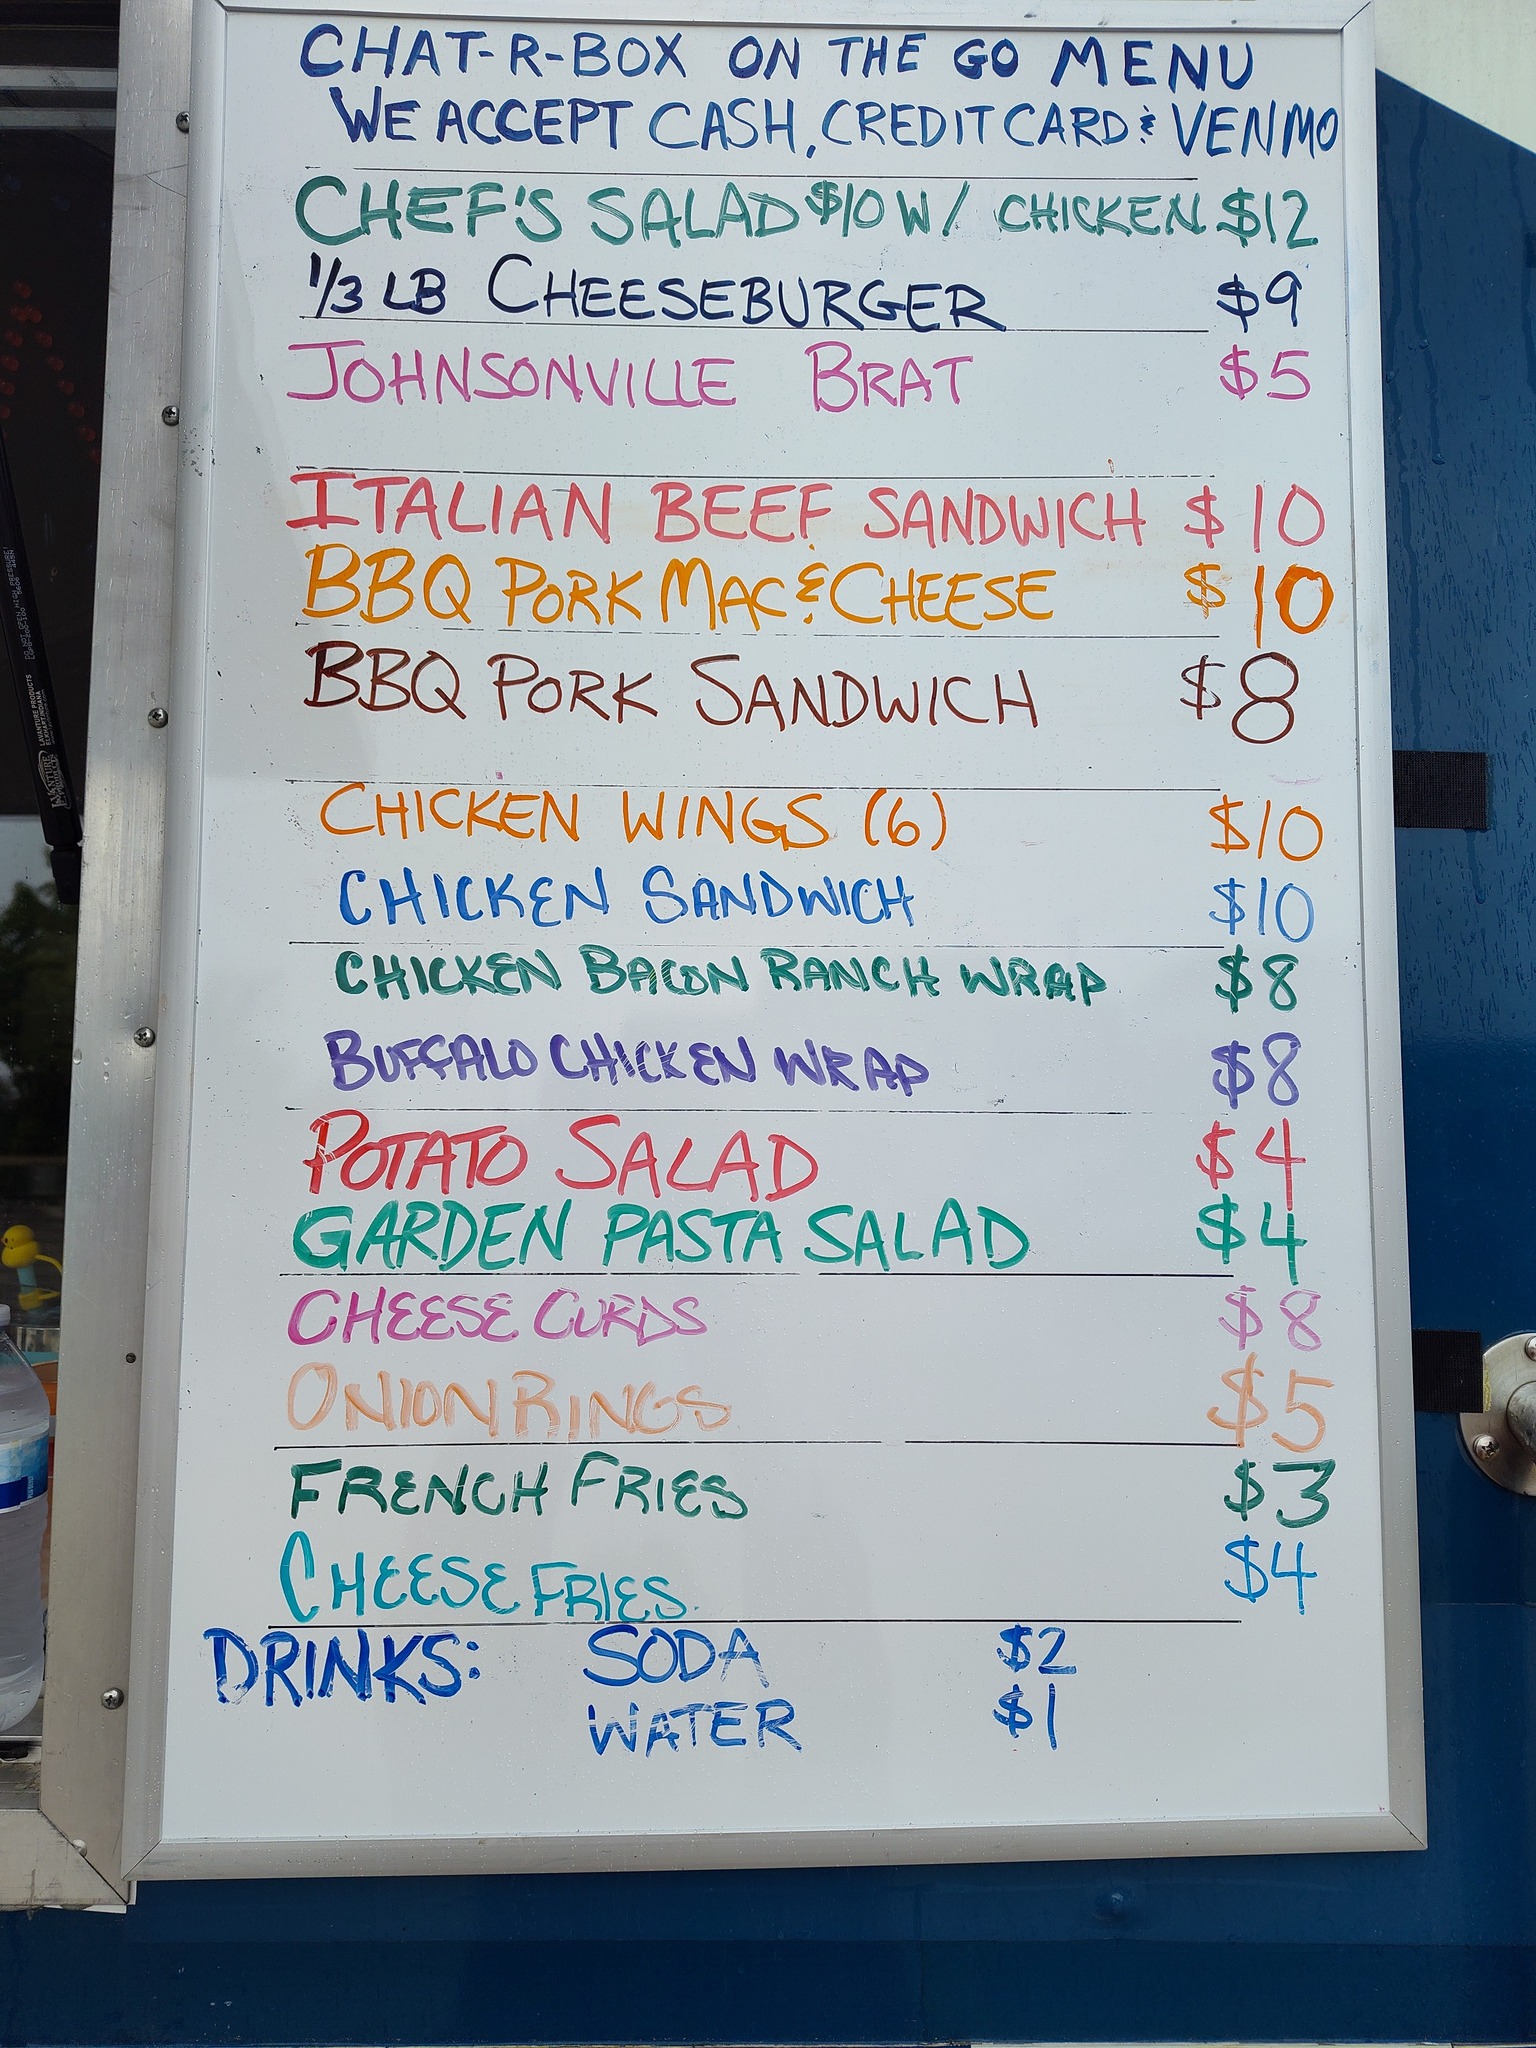 CHAT-R-BOX ON THE GO MENU
WE ACCEPT CASH, CREDIT CARD & VENMO
CHEF'S SALAD $10 W/ CHICKEN $12
1/3 LB CHEESEBURGER $9
JOHNSONVILLE BRAT $5
ITALIAN BEEF SANDWICH $10
BBQ PORK MAC & CHEESE $10
BBQ PORK SANDWICH $8
CHICKEN WINGS (6) $10
CHICKEN SANDWICH $10
CHICKEN BACON RANCH WRAP $8
BUFFALO CHICKEN WRAP $8
POTATO SALAD $4
GARDEN PASTA SALAD $4
CHEESE CURDS $8
ONION RINGS $5
FRENCH FRIES $3
CHEESE FRIES $4
DRINKS: SODA $2
WATER $1
LAVANTURE PRODUCTS
ELKHART, INDIANA